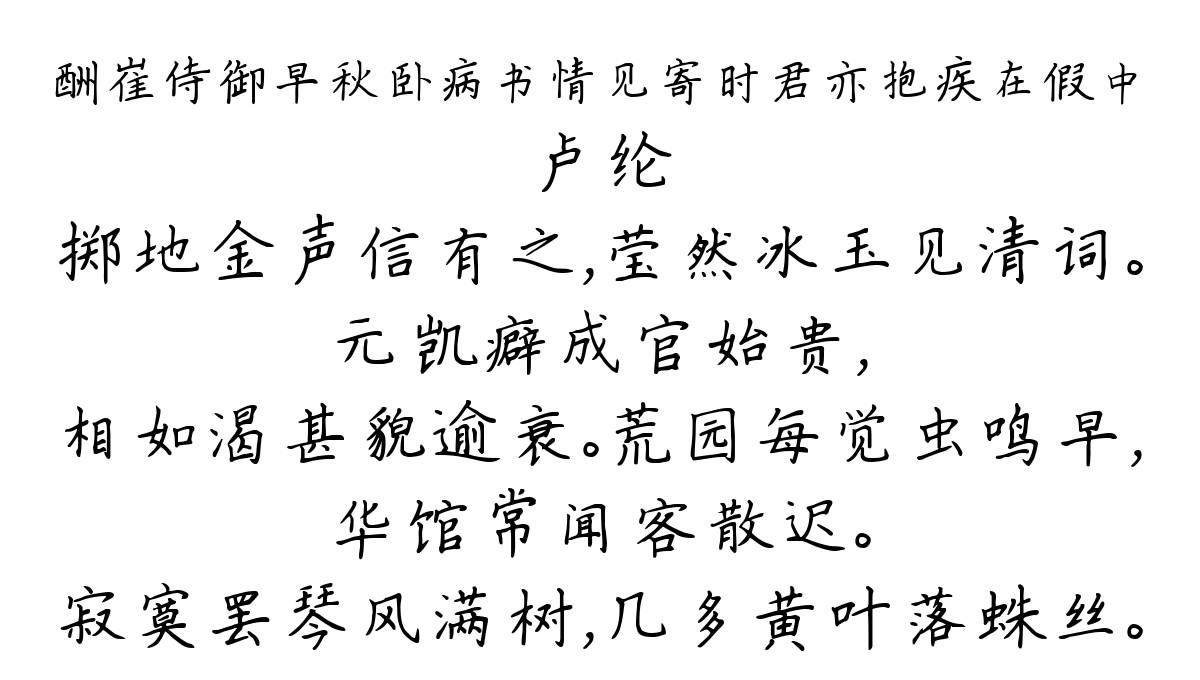 酬崔侍御早秋卧病书情见寄时君亦抱疾在假中
卢纶
掷地金声信有之,莹然冰玉见清词。
元凯癖成官始贵,
相如渴甚貌逾衰。荒园每觉虫鸣早,
华馆常闻客散迟。
寂寞罢琴风满树,几多黄叶落蛛丝。